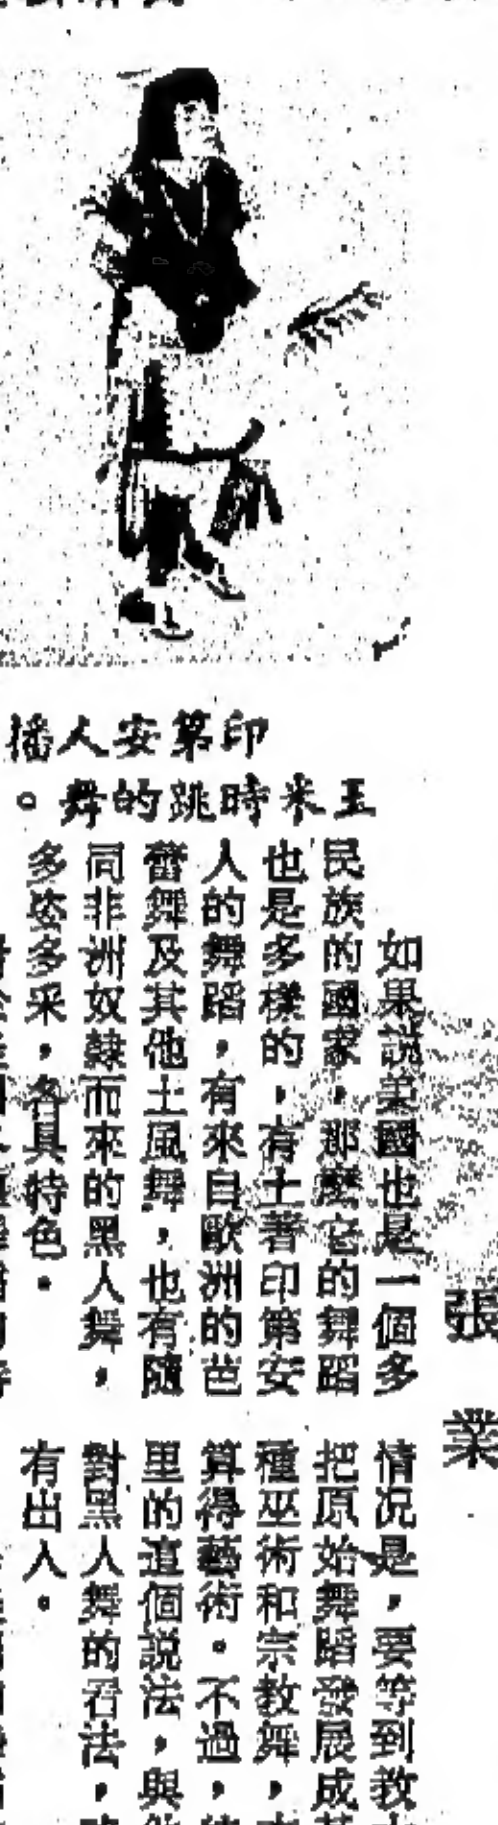 印第安人播
玉米時跳的舞。
張業
如果說美國也是一個多
民族的國家，那麼它的舞蹈
也是多樣的，有土著印第安
人的舞蹈，有來自歐洲的芭
蕾舞及其他土風舞，也有隨
同非洲奴隸而來的黑人舞，
多姿多采，各具特色。
情況是，要等到教
把原始舞蹈發展成
種巫術和宗教舞，
算得藝術。不過，
里的這個說法，與
對黑人舞的看法，
有出入。